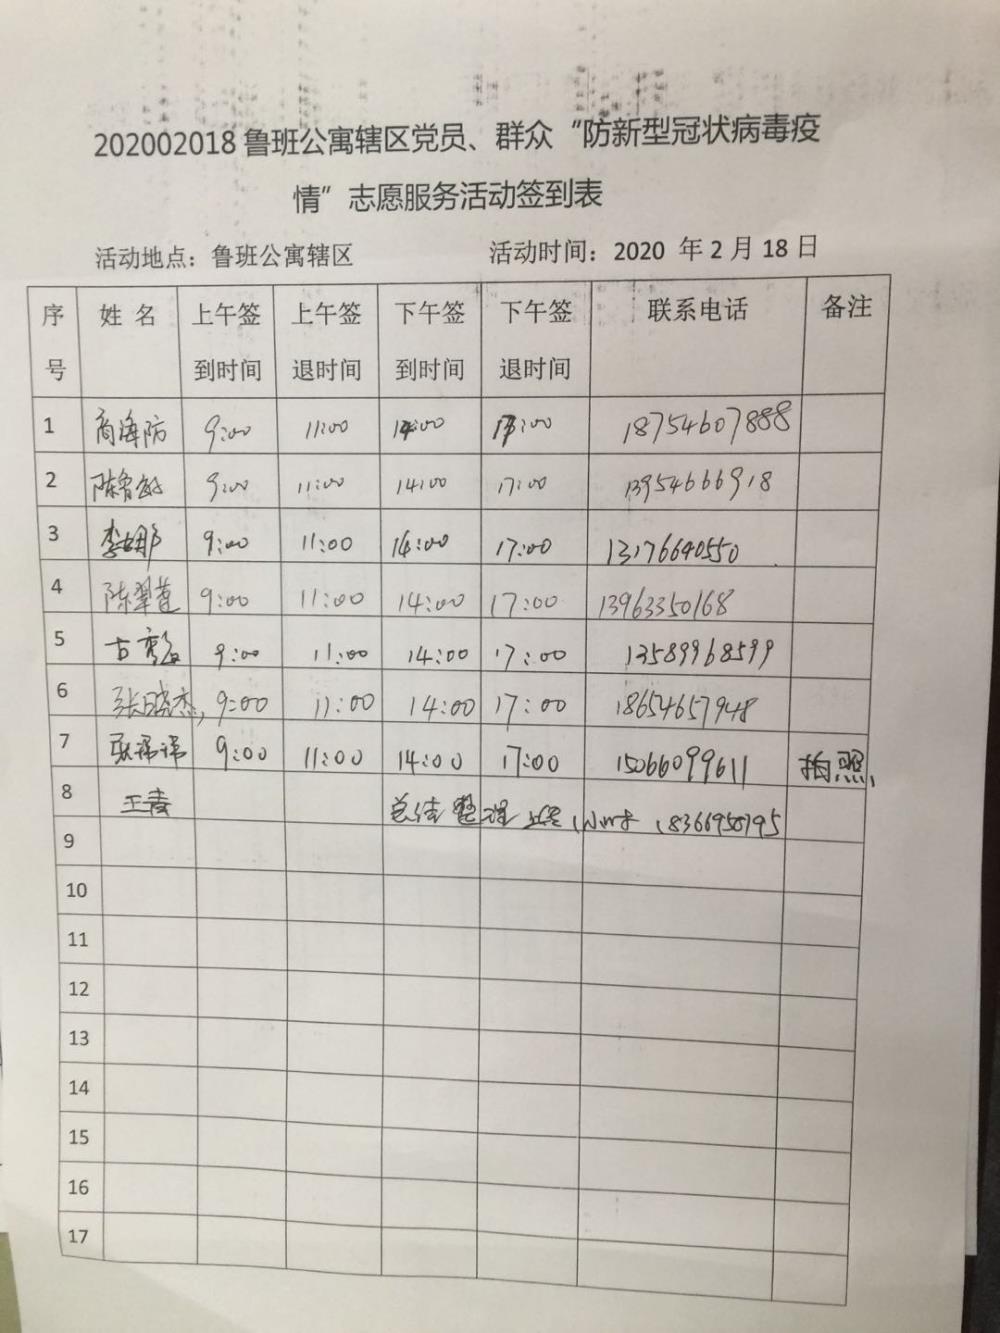 202002018 鲁班公寓辖区党员、群众“防新型冠状病毒疫
情”志愿服务活动签到表
活动地点：鲁班公寓辖区 活动时间：2020 年 2 月 18 日
序号 姓名 上午签到时间 上午签退时间 下午签到时间 下午签退时间 联系电话 备注
1 商海防 9:00 11:00 14:00 17:00 18754607888
2 陈 9:00 11:00 14:00 17:00 13954666918
3 李娜 9:00 11:00 14:00 17:00 13176640550
4 陈翠莲 9:00 11:00 14:00 17:00 13963350168
5 9:00 11:00 14:00 17:00 13589968599
6 张晓杰 9:00 11:00 14:00 17:00 18654657948
7 耿祎祎 9:00 11:00 14:00 17:00 15066099611 拍照
8 王 总结整理上传
9
10
11
12
13
14
15
16
17